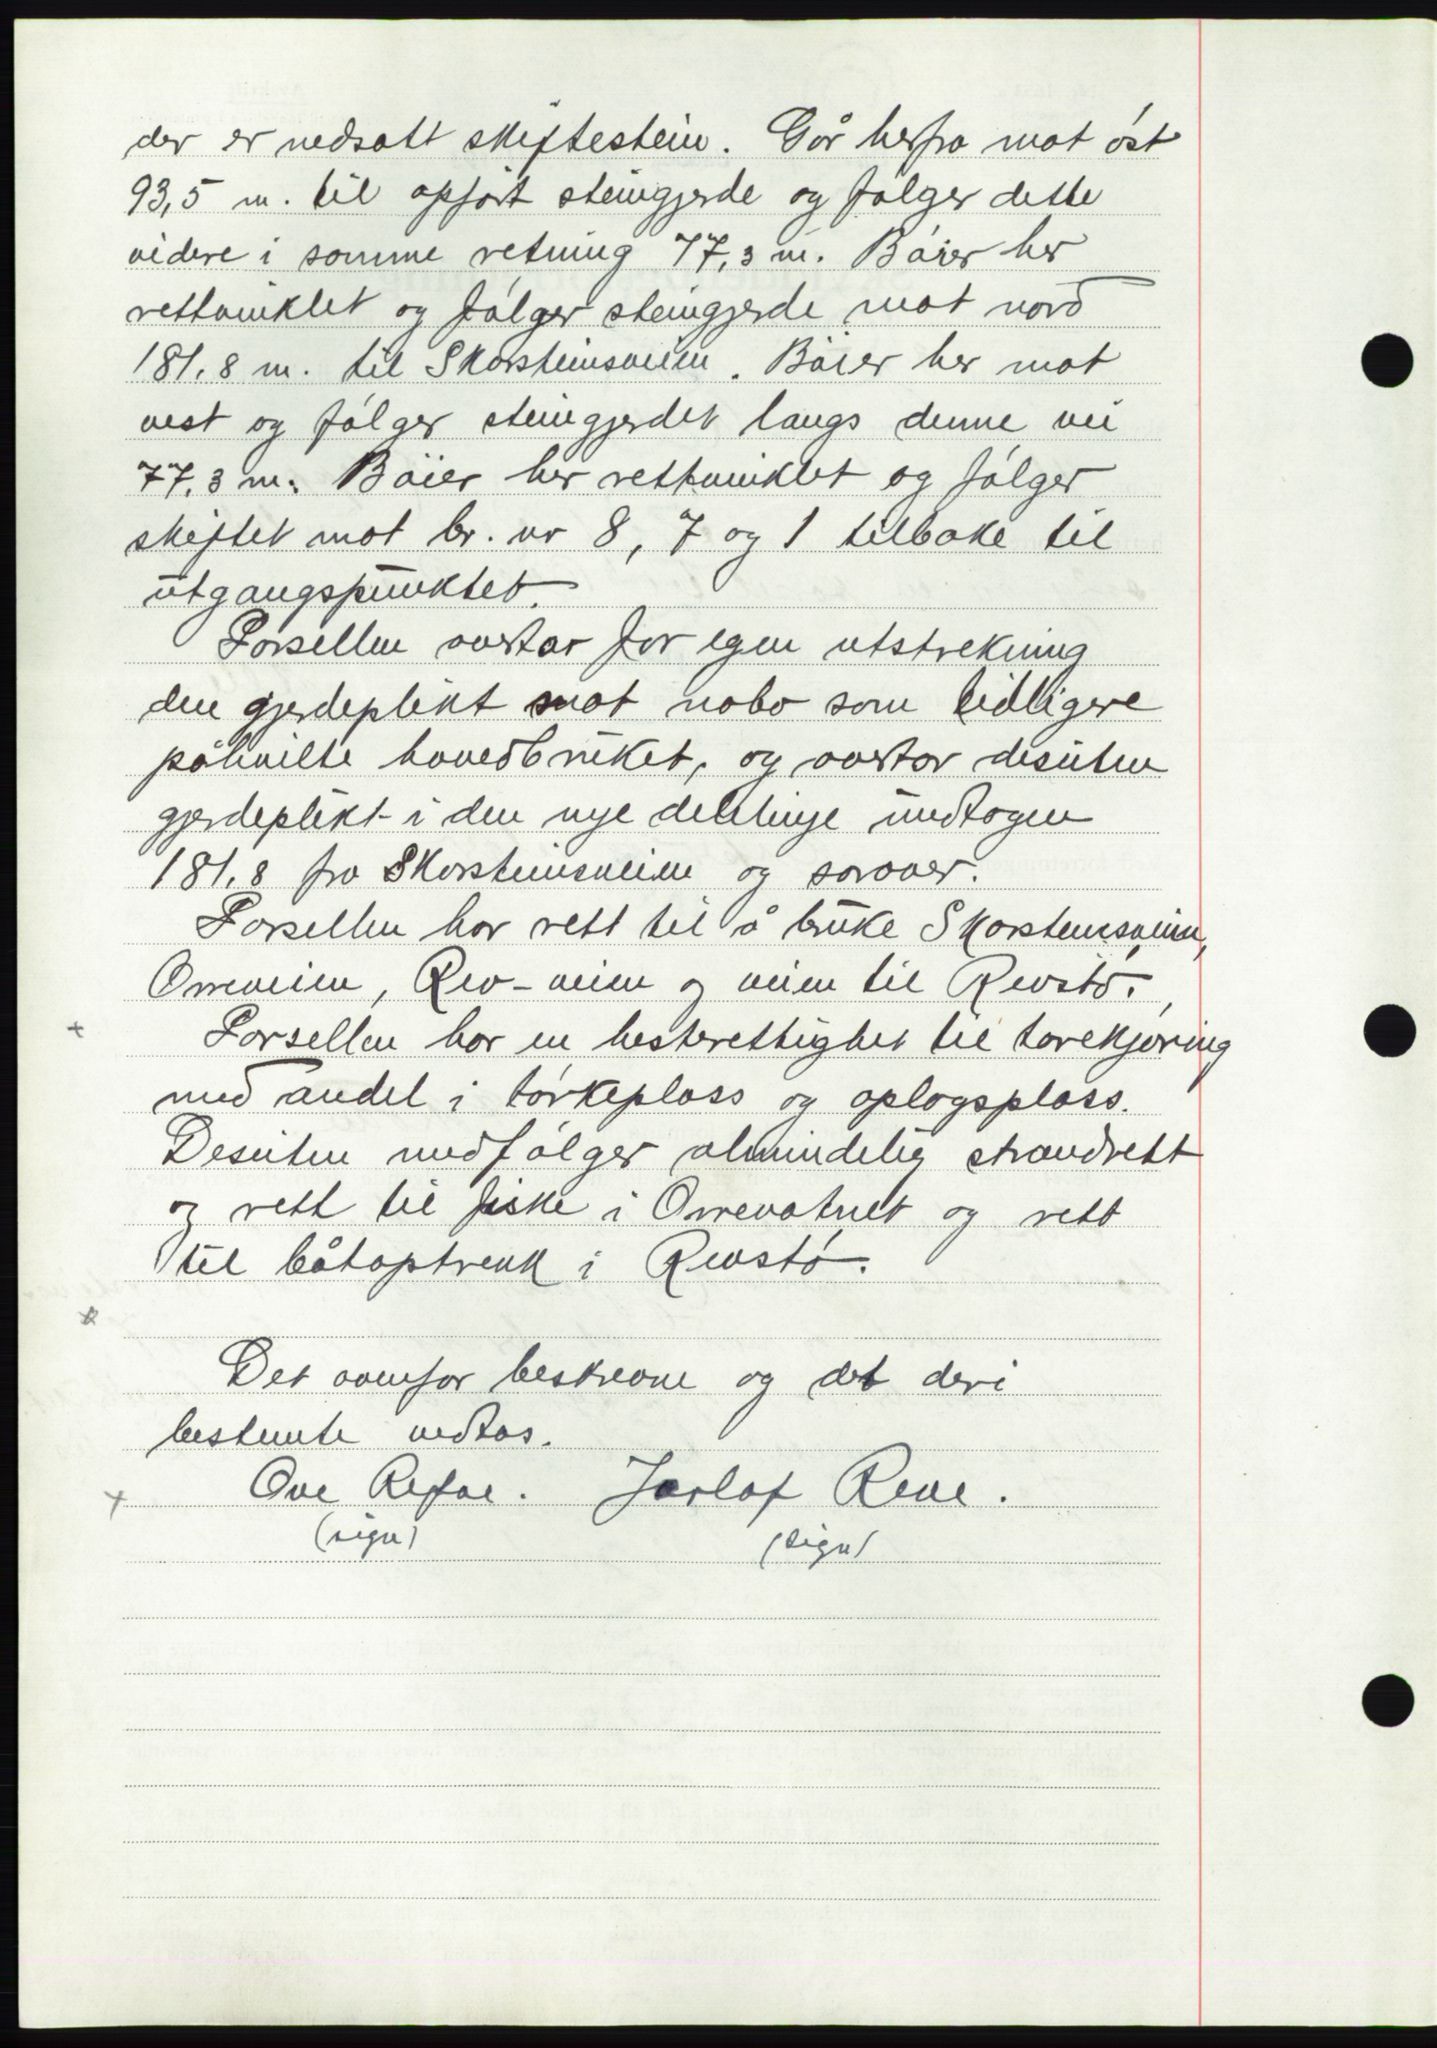 der er nedsatt skiftestein. Går herfra mot öst
93,5 m. til opfört steingjerde og fölger dette
videre i samme retning 77,3 m. Böier her
rettvinklet og fölger steingjerde mot nord
181,8 m. til Skorsteinsveien. Böier her mot
vest og fölger steingjerdet langs denne vei
77,3 m. Böier her rettvinklet og fölger
skiftet mot br. nr 8, 7 og 1 tilbake til
utgangspunktet.
Parsellen overtar for egen utstrekning
den gjerdeplikt mot nabo som tidligere
påhvilte hovedbruket, og overtar desuten
gjerdeplikt i den nye delelinje undtagen
181,8 fra Skorsteinsveien og sorover.
Parsellen har rett til å bruke Skorsteinsveien,
Orreveien, Rev-veien og veien til Revstö.
Parsellen har en hesterettighet til tarekjöring
med andel i törkeplass og oplagsplass.
Desuten medfölger almindelig strandrett
og rett til fiske i Orrevatnet og rett
til båtoptrekk i Revstö.
Det ovenfor beskrevne og det deri
bestemte vedtas.
Ove Refve. Jarlaf Reve.
(sign) (sign)